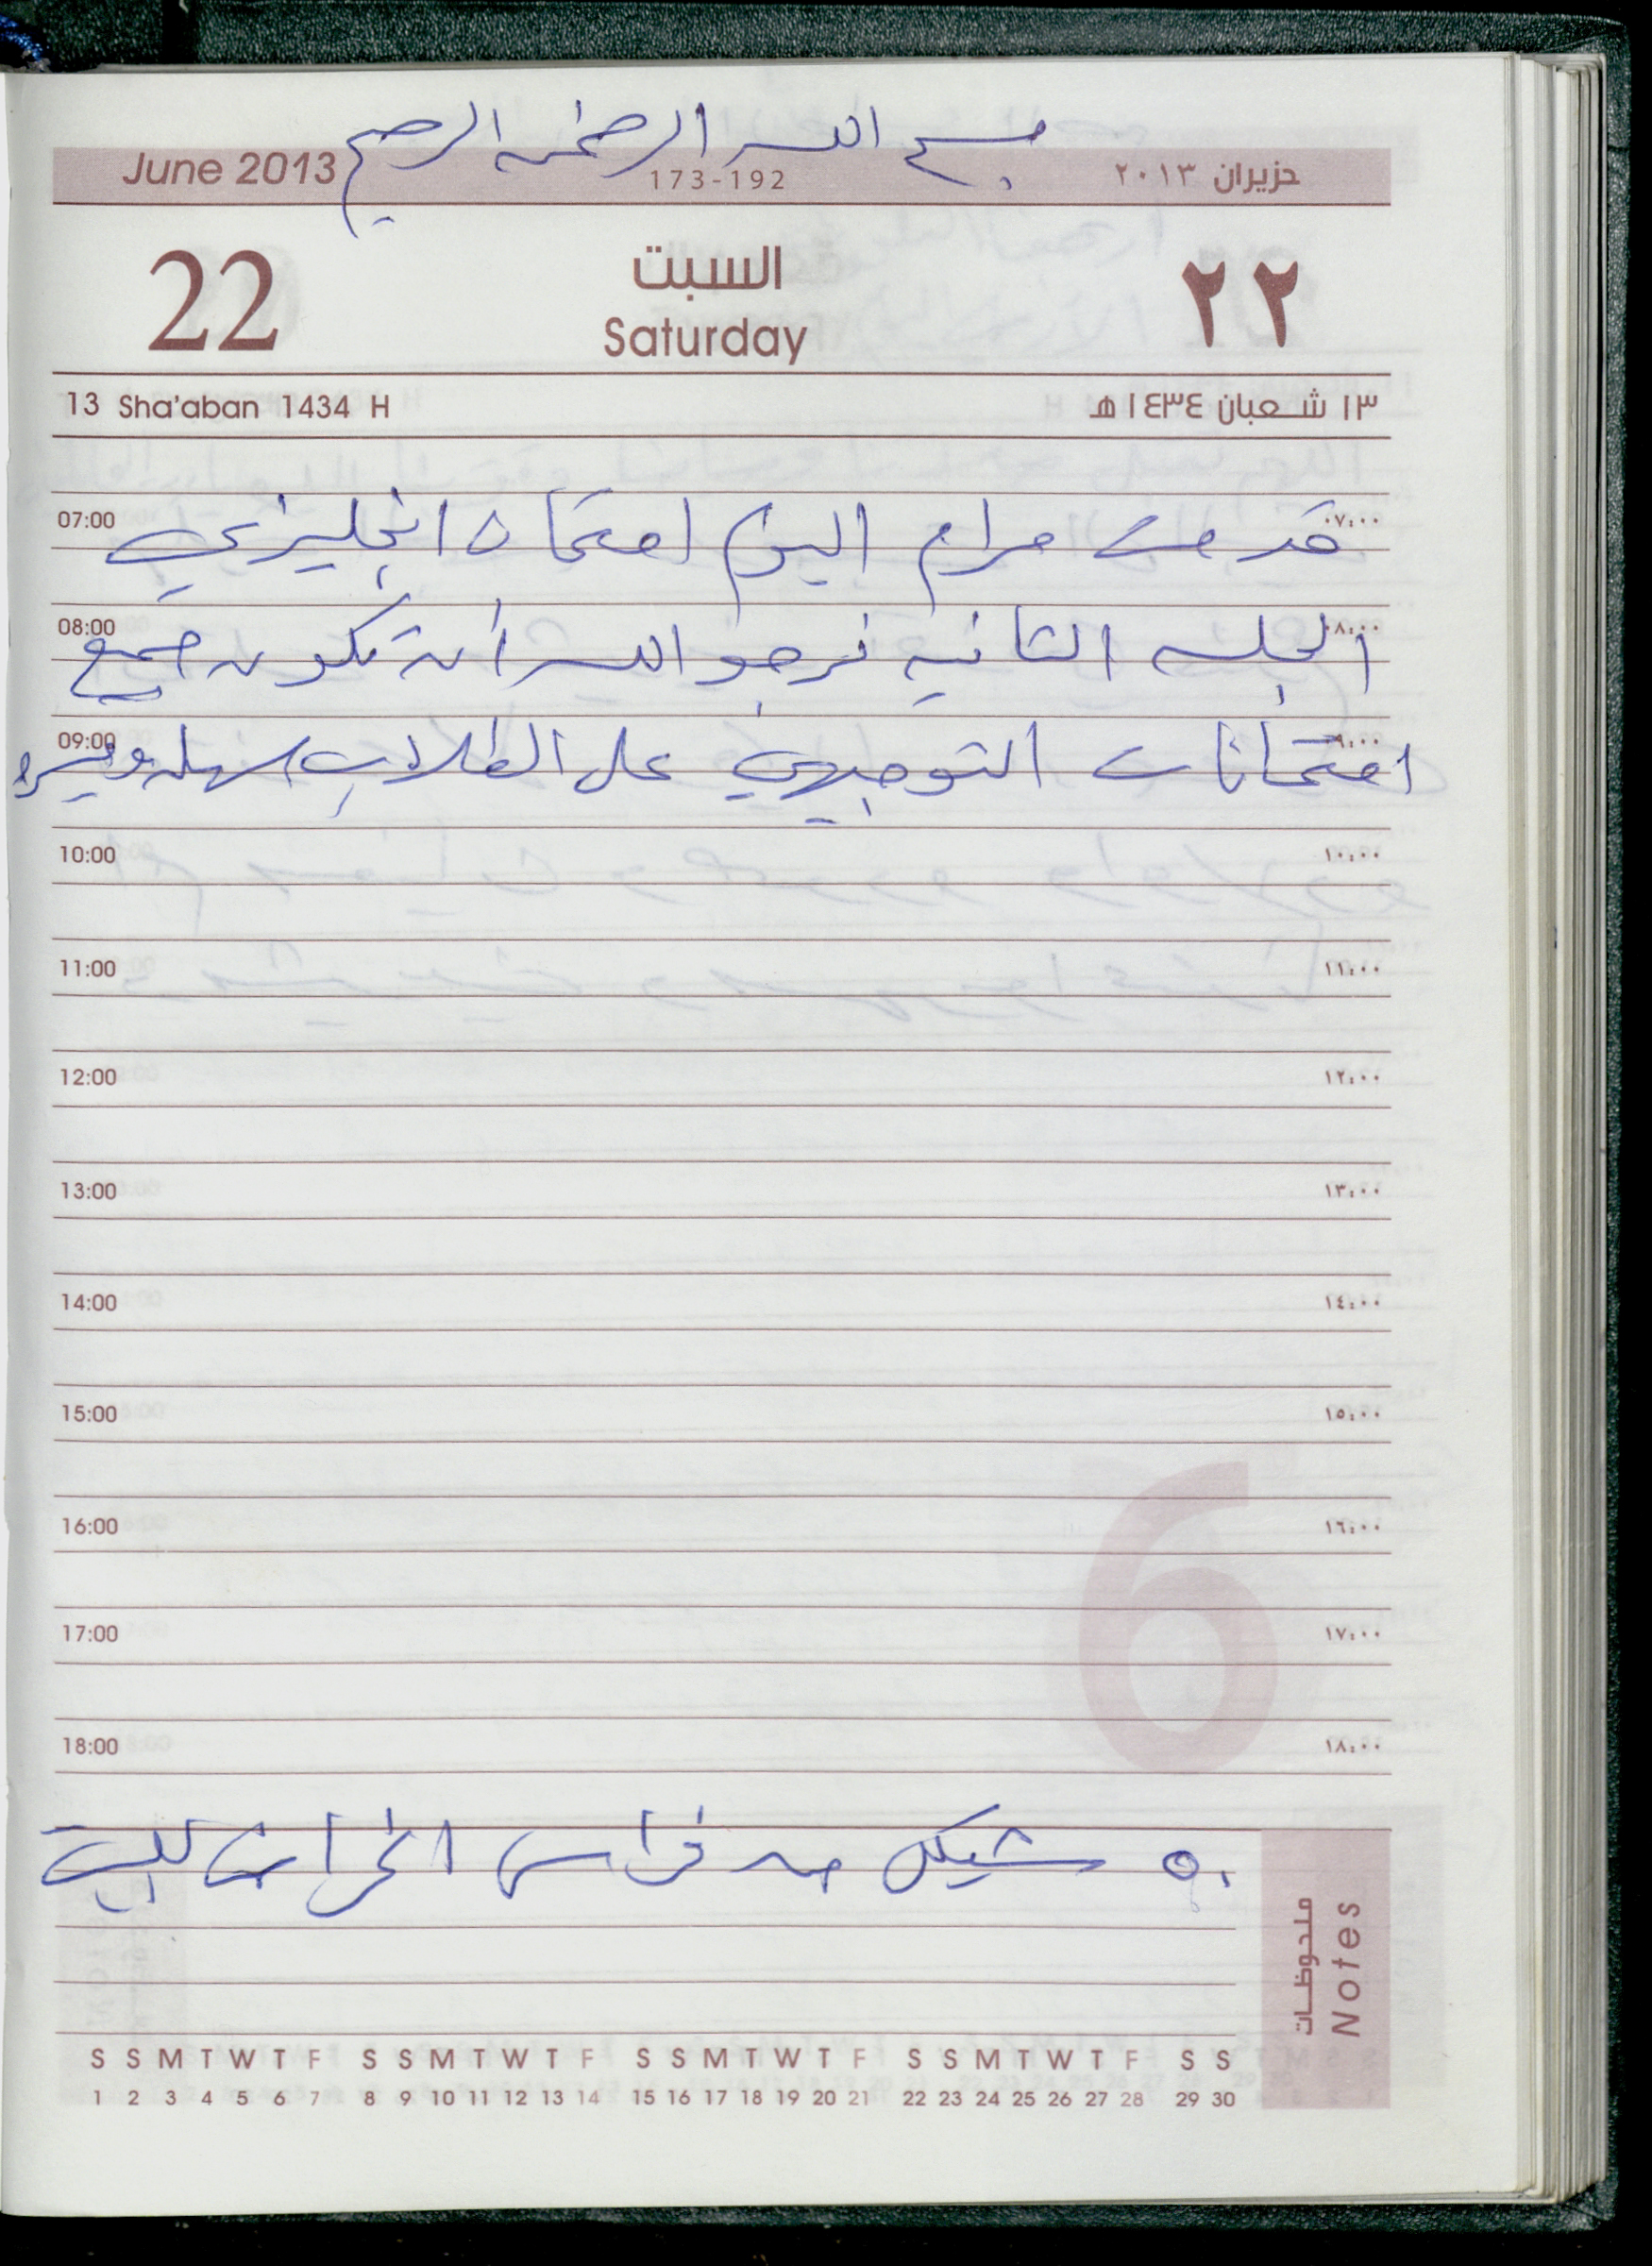 بسم الله الرحمن الرحيم
June 2013 173-192 حزيران ٢٠١٣
22 السبت ٢٢
Saturday
13 Sha'aban 1434 H ١٣ شعبان ١٤٣٤ هـ
07:00 قدمت مرام اليوم امتحان انجليزي ٠٧:٠٠
08:00 الجلسه الثانيه نرجو الله أن تكون جميع ٠٨:٠٠
09:00 امتحانات التوجيهي على الطلاب سهله ويسره ٠٩:٠٠
10:00 ١٠:٠٠
11:00 ١١:٠٠
12:00 ١٢:٠٠
13:00 ١٣:٠٠
14:00 ١٤:٠٠
15:00 ١٥:٠٠
16:00 ١٦:٠٠
17:00 ١٧:٠٠
18:00 ١٨:٠٠
6
٥٠ شيكل من فراس للبيت
ملحوظات
Notes
S S M T W T F S S M T W T F S S M T W T F S S M T W T F S S
1 2 3 4 5 6 7 8 9 10 11 12 13 14 15 16 17 18 19 20 21 22 23 24 25 26 27 28 29 30